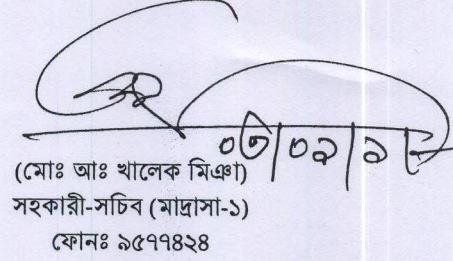 ০৩/০২/১
(মোঃ আঃ খালেক মিঞা)
সহকারী-সচিব (মাদ্রাসা-১)
ফোনঃ ৯৫৭৭৪২৪